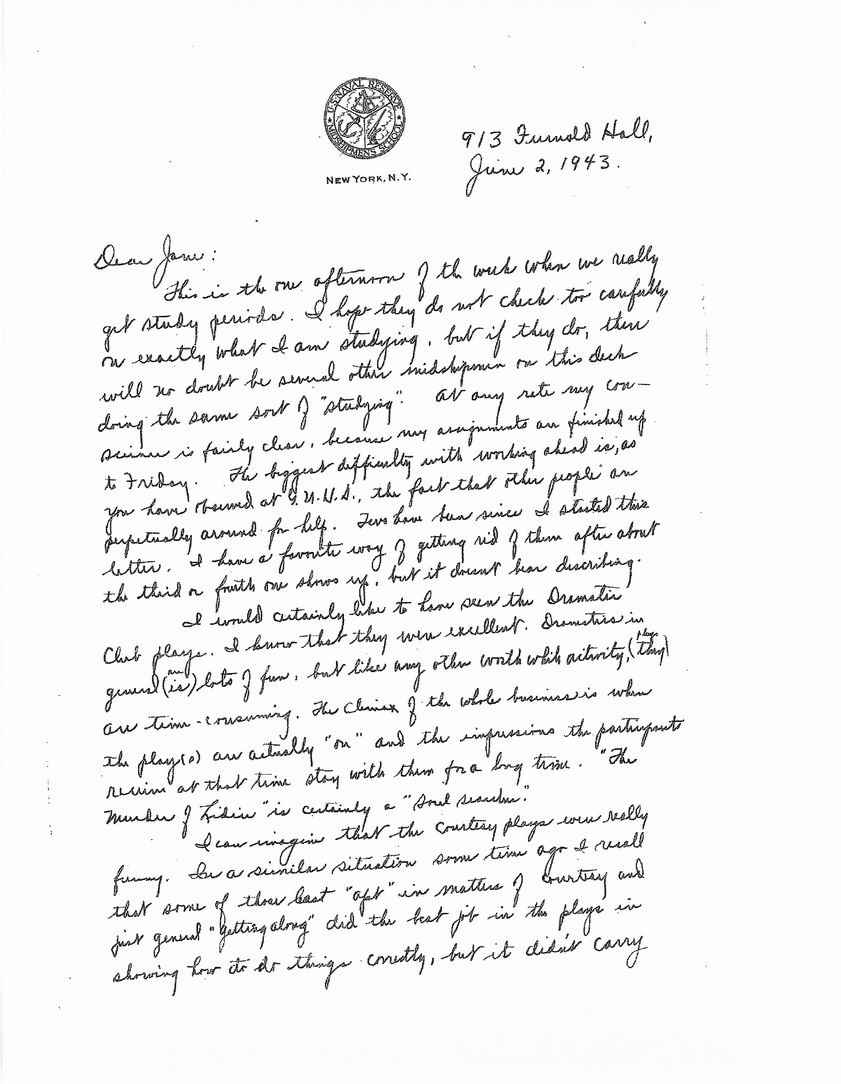 U.S. NAVAL RESERVE
MIDSHIPMEN'S SCHOOL
NEW YORK, N.Y.
913 Furnald Hall,
June 2, 1943.
Dear Jane:
This is the one afternoon of the week when we really
get study periods. I hope they do not check too carefully
on exactly what I am studying, but if they do, there
will no doubt be several other midshipmen on this deck
doing the same sort of "studying". At any rate my con-
science is fairly clear, because my assignments are finished up
to Friday. The biggest difficulty with working ahead is, as
you have observed at I.U.H.S., the fact that other people are
perpetually around for help. Two have been since I started this
letter. I have a favorite way of getting rid of them after about
the third or fourth one shows up, but it doesn't bear describing.
I would certainly like to have seen the Dramatic
Club plays. I know that they were excellent. Dramatics in
general (is) are lots of fun, but like any other worth while activity, (they) plays
are time-consuming. The climax of the whole business is when
the play(s) are actually "on" and the impressions the participants
receive at that time stay with them for a long time. "The
Murder of Lidice" is certainly a "soul searcher."
I can imagine that the courtesy plays were really
funny. In a similar situation some time ago I recall
that some of those least "apt" in matters of courtesy and
just general "getting along" did the best job in the plays in
showing how to do things correctly, but it didn't carry